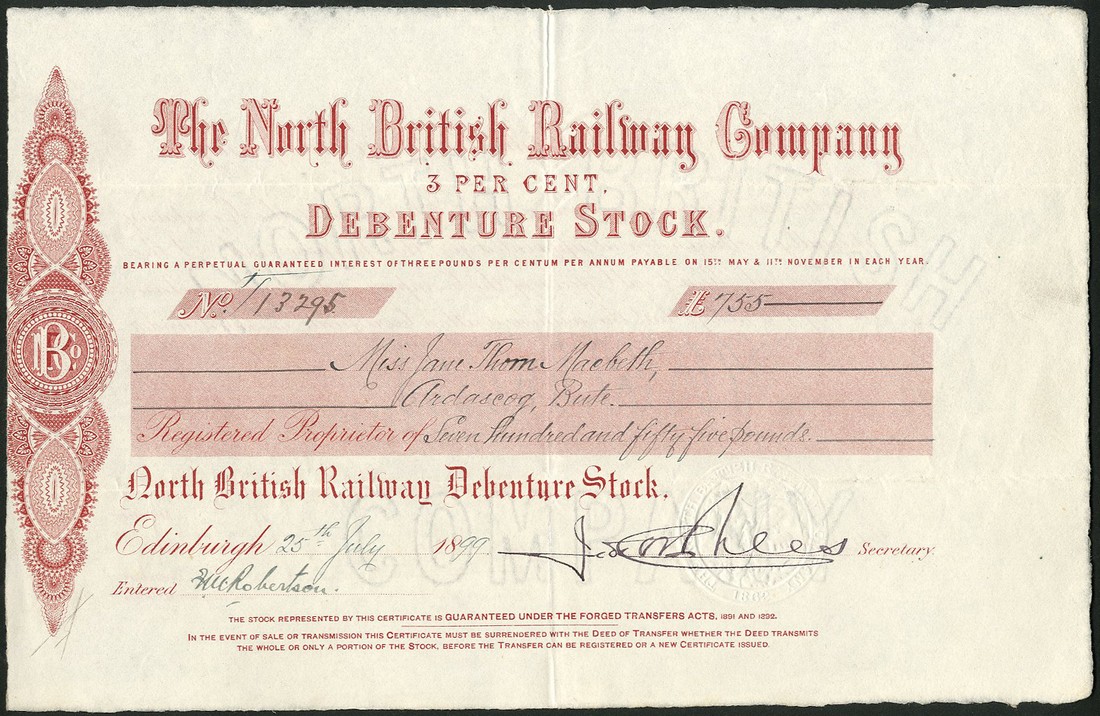 The North British Railway Company
3 PER CENT.
DEBENTURE STOCK.
BEARING A PERPETUAL GUARANTEED INTEREST OF THREE POUNDS PER CENTUM PER ANNUM PAYABLE ON 15TH MAY & 11TH NOVEMBER IN EACH YEAR.
No. T/13295. £755
Miss Jane Thom Macbeth,
Ardascog, Bute.
Registered Proprietor of Seven hundred and fifty five pounds.
North British Railway Debenture Stock.
Edinburgh 25th July 1899 Secretary.
Entered Robertson.
THE STOCK REPRESENTED BY THIS CERTIFICATE IS GUARANTEED UNDER THE FORGED TRANSFERS ACTS, 1891 AND 1892.
IN THE EVENT OF SALE OR TRANSMISSION THIS CERTIFICATE MUST BE SURRENDERED WITH THE DEED OF TRANSFER WHETHER THE DEED TRANSMITS
THE WHOLE OR ONLY A PORTION OF THE STOCK, BEFORE THE TRANSFER CAN BE REGISTERED OR A NEW CERTIFICATE ISSUED.
NORTH BRITISH
COMPANY